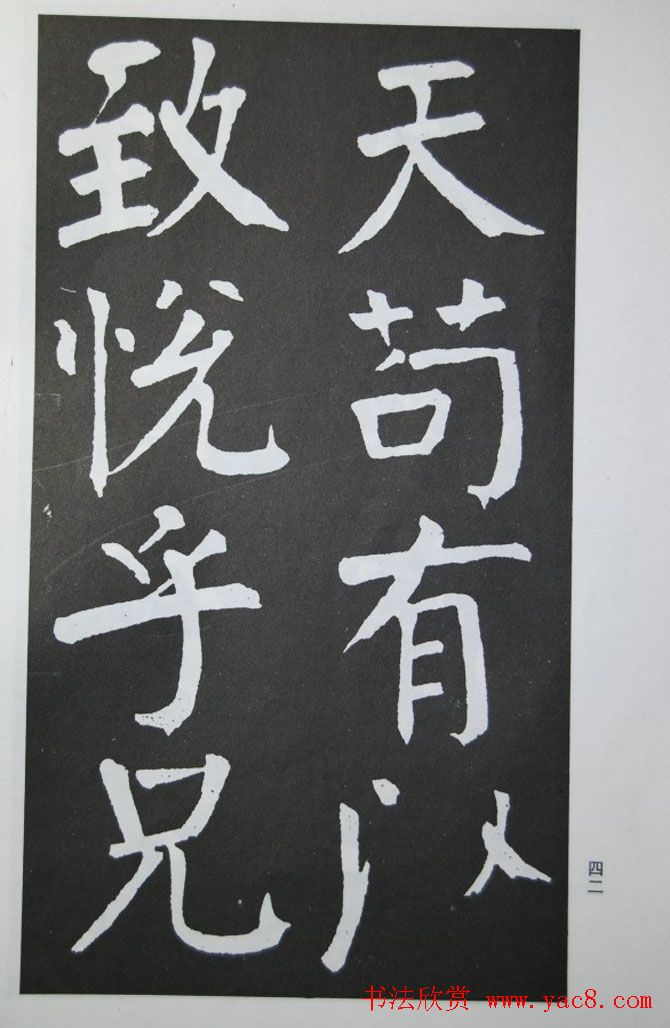 天苟有以
致悦乎兄
四二
书法欣赏 www.yac8.com